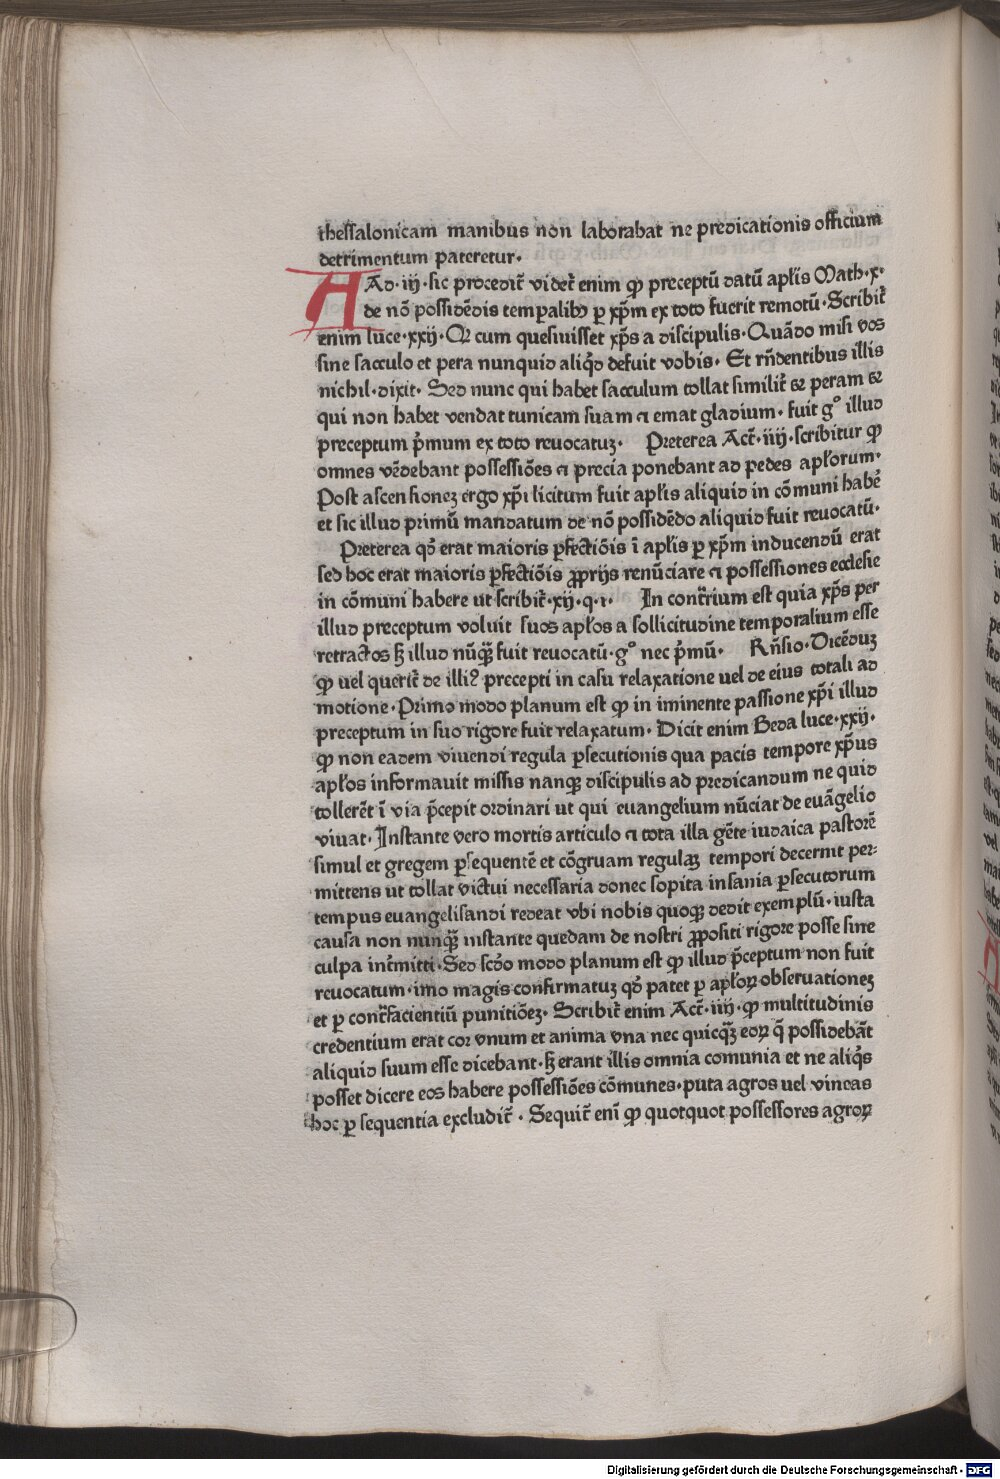 thessalonicam manibus non laborabat ne predicationis officium
detrimentum pateretur.
AD .iij. sic procedit᷒ videt᷒ enim ꝙ preceptū datū apl̄is Math.x.
de nō possidēdis temporalibꝫ ꝑ xp̄m ex toto fuerit remotū. Scribit᷒
enim luce.xxij. Qꝛ cum quesiuisset xp̄s a discipulis. Quādo misi vos
sine sacculo et pera nunquid aliqͥd defuit vobis. Et rn̄dentibus illis
nichil. dixit. Sed nunc qui habet sacculum tollat similit᷒ ⁊ peram ⁊
qui non habet vendat tunicam suam ⁊ emat gladium. fuit gͦ illud
preceptum pͥmum ex toto reuocatuꝫ. Preterea Act᷒.iiij. scribitur ꝙ
omnes vēdebant possessiōes ⁊ precia ponebant ad pedes apl̄orum.
Post ascensioneꝫ ergo xp̄i licitum fuit apl̄is aliquid in cōmuni habe᷒
et sic illud primū mandatum de nō possidēdo aliquid fuit reuocatū.
Preterea qd̓ erat maioris ꝑfectiōis ī apl̄is ꝑ xp̄m inducendū erat
sed hoc erat maioris ꝑfectiōis ꝓprijs renūciare ⁊ possessiones ecclesie
in cōmuni habere ut scribit᷒.xij.q.i. In cont᷒rium est quia xp̄s per
illud preceptum voluit suos apl̄os a sollicitudine temporalium esse
retractos sꝫ illud nūqᷓꝫ fuit reuocatū. gͦ nec pͥmū. Rn̄sio. Dicēduꝫ
ꝙ uel querit᷒ de illiꝰ precepti in casu relaxatione uel de eius totali ad
motione. Primo modo planum est ꝙ in iminente passione xp̄i illud
preceptum in suo rigore fuit relaxatum. Dicit enim Beda luce.xxij.
ꝙ non eadem viuendi regula ꝑsecutionis qua pacis tempore xp̄us
apl̄os informauit missis nanqꝫ discipulis ad predicandum ne quid
tollerēt ī via p̄cepit ordinari ut qui euangelium nūciat de euāgelio
viuat. Instante vero mortis articulo ⁊ tota illa gēte iudaica pastorē
simul et gregem ꝑsequentē et cōgruam regulaꝫ tempori decernit per⸗
mittens ut tollat victui necessaria donec sopita insania ꝑsecutorum
tempus euangelisandi redeat vbi nobis quoqꝫ dedit exemplū. iusta
causa non nunqᷓꝫ instante quedam de nostri ꝓpositi rigore posse sine
culpa int᷒mitti. Sed scd̓o modo planum est ꝙ illud p̄ceptum non fuit
reuocatum. imo magis confirmatuꝫ qd̓ patet ꝑ apl̄oꝝ obseruationeꝫ
et ꝑ cont᷒facientiū punitiōeꝫ. Scribit᷒ enim Act᷒.iiij. ꝙ multitudinis
credentium erat cor vnum et anima vna nec quicqᷓꝫ eoꝝ q̄ possidebāt
aliquid suum esse dicebant. sꝫ erant illis omnia comunia et ne aliqͥs
posset dicere eos habere possessiōes cōmunes. puta agros uel vineas
hoc ꝑ sequentia excludit᷒. Sequit᷒ eni̅ ꝙ quotquot possessores agroꝝ
Digitalisierung gefördert durch die Deutsche Forschungsgemeinschaft - DFG